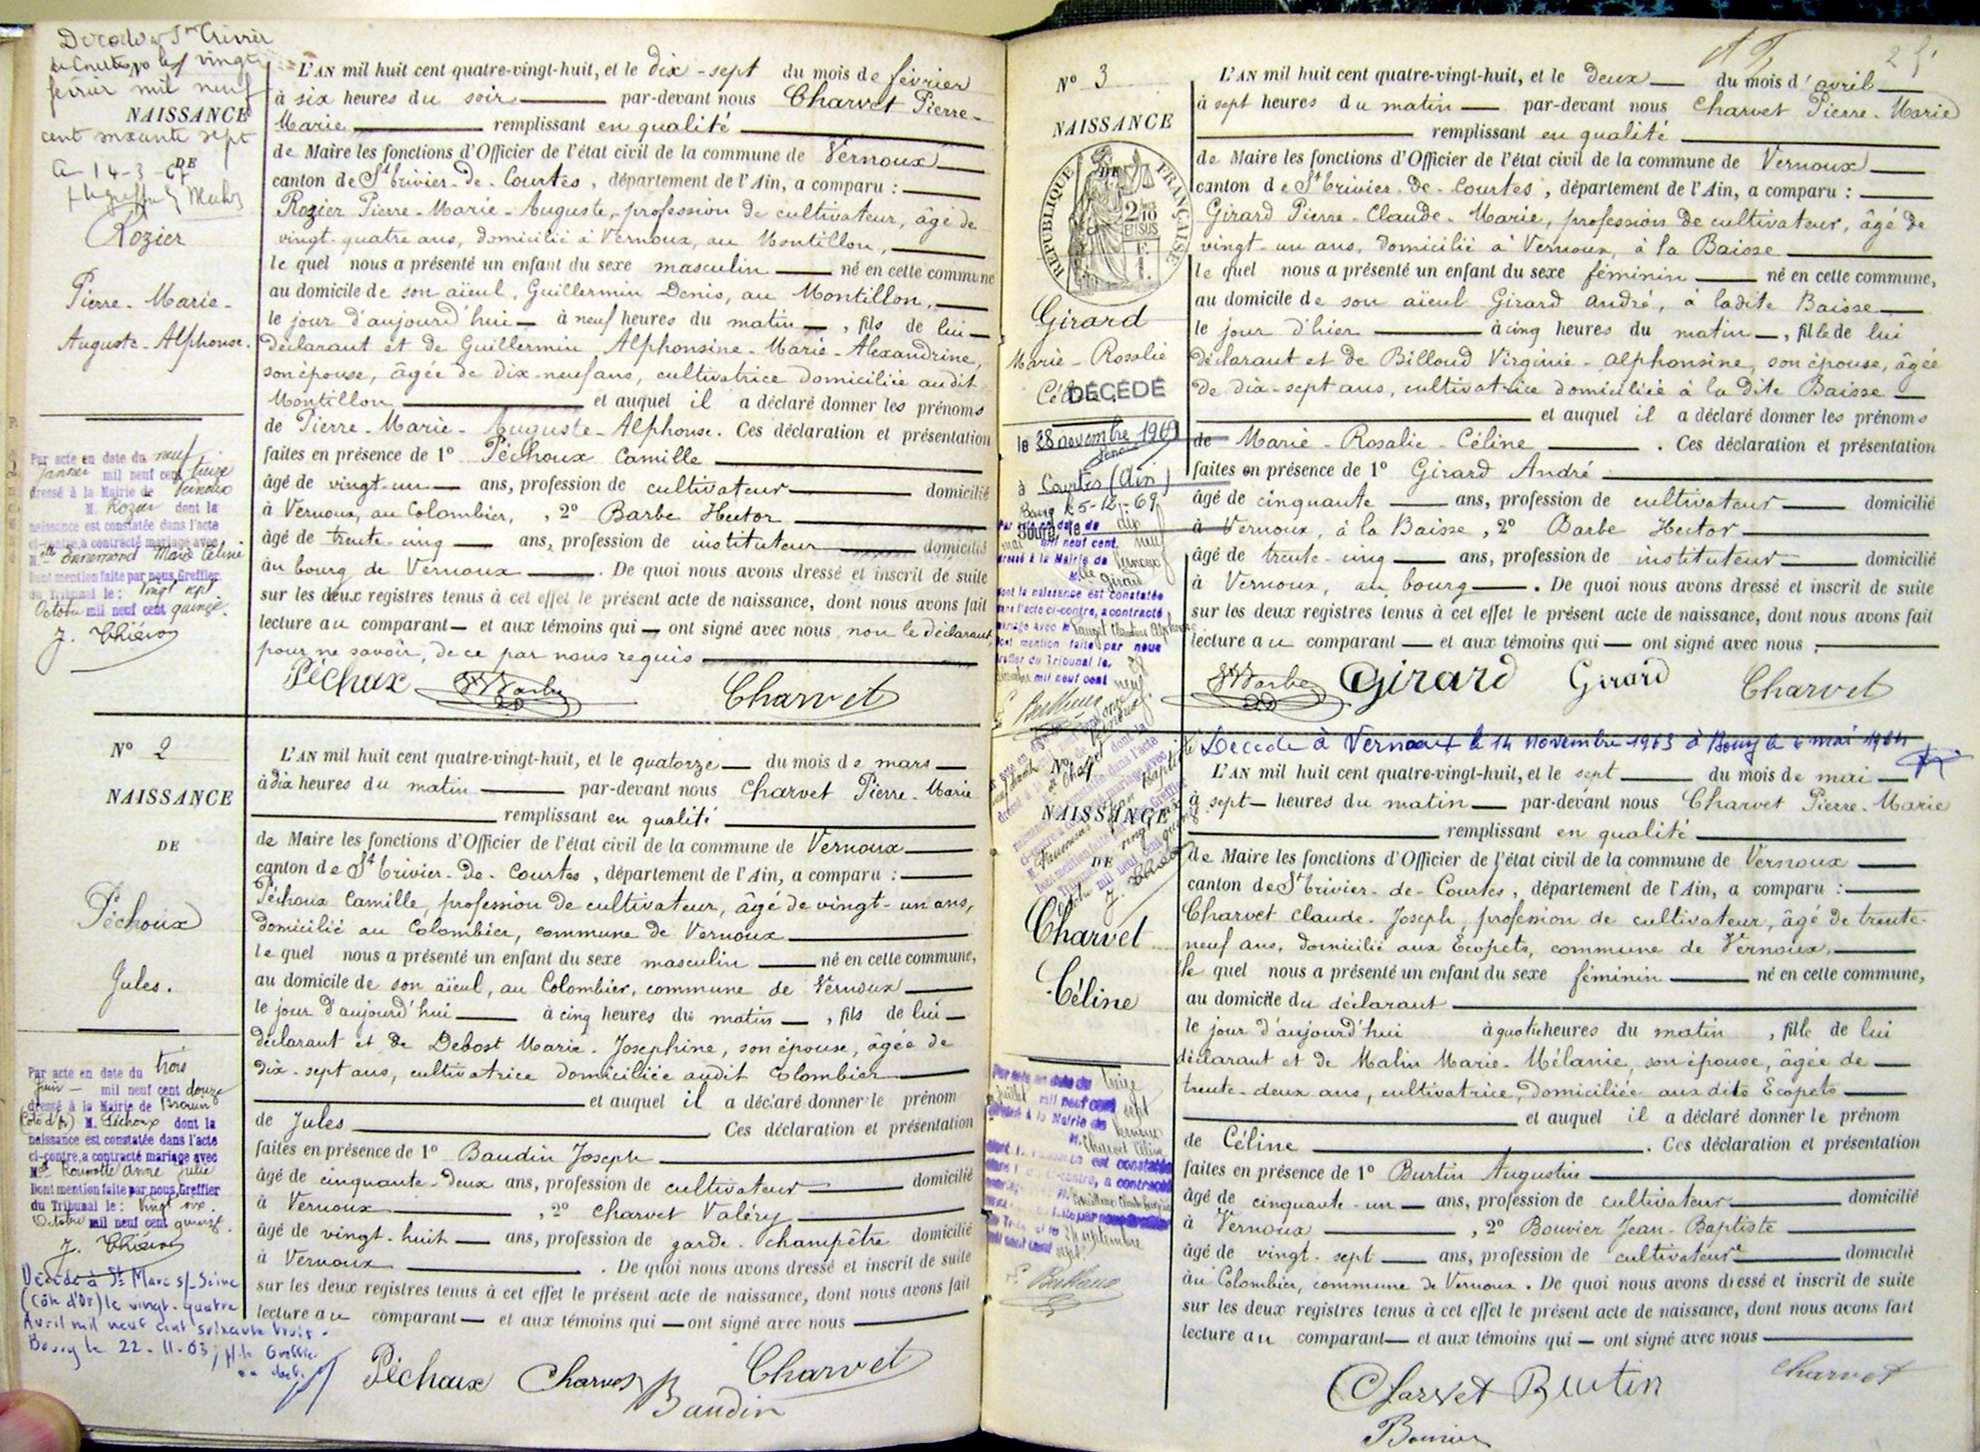 Décédé à St Trivier
de Courtes le vingt
février mil neuf
NAISSANCE
cent soixante sept
DE
14-3-67
Rozier
Pierre-Marie-
Auguste-Alphonse.
L'AN mil huit cent quatre-vingt-huit, et le dix-sept du mois de février
à six heures du soir par-devant nous Charvet Pierre-
Marie remplissant en qualité
de Maire les fonctions d'Officier de l'état civil de la commune de Vernoux
canton de St Trivier-de-Courtes, département de l'Ain, a comparu :
Rozier Pierre-Marie-Auguste, profession de cultivateur, âgé de
vingt-quatre ans, domicilié à Vernoux, au Montillon,
le quel nous a présenté un enfant du sexe masculin né en cette commune
au domicile de son aïeul, Guillermin Denis, au Montillon,
le jour d'aujourd'hui à neuf heures du matin, fils de lui
déclarant et de Guillermin Alphonsine-Marie-Alexandrine,
son épouse, âgée de dix-neuf ans, cultivatrice domiciliée audit
Montillon et auquel il a déclaré donner les prénoms
de Pierre-Marie-Auguste-Alphonse. Ces déclaration et présentation
faites en présence de 1° Péchoux Camille
âgé de vingt-un ans, profession de cultivateur domicilié
à Vernoux, au Colombier, , 2° Barbe Hector
âgé de trente-cinq ans, profession de instituteur domicilié
au bourg de Vernoux . De quoi nous avons dressé et inscrit de suite
sur les deux registres tenus à cet effet le présent acte de naissance, dont nous avons fait
lecture au comparant et aux témoins qui ont signé avec nous, non le déclarant,
pour ne savoir, de ce par nous requis
Péchoux Barbe Charvet
Par acte en date du neuf
Janvier mil neuf cent treize
dressé à la Mairie de Vernoux
M. Rozier dont la
naissance est constatée dans l'acte
ci-contre, a contracté mariage avec
Marie Céline
Dont mention faite par nous, Greffier
du Tribunal le : vingt sept
Octobre mil neuf cent quinze.
N° 2
NAISSANCE
DE
Péchoux
Jules.
L'AN mil huit cent quatre-vingt-huit, et le quatorze du mois de mars
à dix heures du matin par-devant nous Charvet Pierre-Marie
remplissant en qualité
de Maire les fonctions d'Officier de l'état civil de la commune de Vernoux
canton de St Trivier-de-Courtes, département de l'Ain, a comparu :
Péchoux Camille, profession de cultivateur, âgé de vingt-un ans,
domicilié au Colombier, commune de Vernoux
le quel nous a présenté un enfant du sexe masculin né en cette commune,
au domicile de son aïeul, au Colombier, commune de Vernoux
le jour d'aujourd'hui à cinq heures du matin, fils de lui
déclarant et de Debost Marie-Josephine, son épouse, âgée de
dix-sept ans, cultivatrice domiciliée audit Colombier
et auquel il a déclaré donner le prénom
de Jules Ces déclaration et présentation
faites en présence de 1° Baudin Joseph
âgé de cinquante-deux ans, profession de cultivateur domicilié
à Vernoux , 2° Charvet Valéry
âgé de vingt-huit ans, profession de garde-champêtre domicilié
à Vernoux . De quoi nous avons dressé et inscrit de suite
sur les deux registres tenus à cet effet le présent acte de naissance, dont nous avons fait
lecture au comparant et aux témoins qui ont signé avec nous
Péchoux Charvet Baudin Charvet
Par acte en date du trois
Juin mil neuf cent douze
dressé à la Mairie de
(Côte d'Or) M. Péchoux dont la
naissance est constatée dans l'acte
ci-contre, a contracté mariage avec
Anne Julie
Dont mention faite par nous, Greffier
du Tribunal le : vingt six
Octobre mil neuf cent quinze.
Décédé à St Marc s/-Seine
(Côte d'Or) le vingt-quatre
Avril mil neuf cent soixante trois.
Bourg le 22-11-63
N° 3
NAISSANCE
DE
RÉPUBLIQUE FRANÇAISE
Girard
Marie-Rosalie
DÉCÉDÉ
le 28 novembre 1969
à Courtes (Ain)
Bourg, le 5-12-69
L'AN mil huit cent quatre-vingt-huit, et le deux du mois d'avril
à sept heures du matin par-devant nous Charvet Pierre-Marie
remplissant en qualité
de Maire les fonctions d'Officier de l'état civil de la commune de Vernoux
canton de St Trivier-de-Courtes, département de l'Ain, a comparu :
Girard Pierre-Claude-Marie, profession de cultivateur, âgé de
vingt-un ans, domicilié à Vernoux, à la Baisse
le quel nous a présenté un enfant du sexe féminin né en cette commune,
au domicile de son aïeul Girard André, à ladite Baisse
le jour d'hier à cinq heures du matin, fille de lui
déclarant et de Billoud Virginie-Alphonsine, son épouse, âgée
de dix-sept ans, cultivatrice domiciliée à la dite Baisse
et auquel il a déclaré donner les prénoms
de Marie-Rosalie-Céline . Ces déclaration et présentation
faites en présence de 1° Girard André
âgé de cinquante ans, profession de cultivateur domicilié
à Vernoux, à la Baisse, 2° Barbe Hector
âgé de trente-cinq ans, profession de instituteur domicilié
à Vernoux, au bourg . De quoi nous avons dressé et inscrit de suite
sur les deux registres tenus à cet effet le présent acte de naissance, dont nous avons fait
lecture au comparant et aux témoins qui ont signé avec nous,
Barbe Girard Girard Charvet
Décédé à Vernoux le 14 novembre 1963 à Bourg le 6 mai 1964
NAISSANCE
DE
Charvet
Céline
L'AN mil huit cent quatre-vingt-huit, et le sept du mois de mai
à sept heures du matin par-devant nous Charvet Pierre-Marie
remplissant en qualité
de Maire les fonctions d'Officier de l'état civil de la commune de Vernoux
canton de St Trivier-de-Courtes, département de l'Ain, a comparu :
Charvet Claude-Joseph, profession de cultivateur, âgé de trente-
neuf ans, domicilié aux Ecopets, commune de Vernoux,
le quel nous a présenté un enfant du sexe féminin né en cette commune,
au domicile du déclarant
le jour d'aujourd'hui à quatre heures du matin, fille de lui
déclarant et de Malin Marie-Mélanie, son épouse, âgée de
trente-deux ans, cultivatrice, domiciliée aux dits Ecopets
et auquel il a déclaré donner le prénom
de Céline . Ces déclaration et présentation
faites en présence de 1° Burtin Augustin
âgé de cinquante-un ans, profession de cultivateur domicilié
à Vernoux , 2° Bouvier Jean-Baptiste
âgé de vingt-sept ans, profession de cultivateur domicilié
au Colombier, commune de Vernoux. De quoi nous avons dressé et inscrit de suite
sur les deux registres tenus à cet effet le présent acte de naissance, dont nous avons fait
lecture au comparant et aux témoins qui ont signé avec nous
Charvet Burtin Charvet
Bouvier